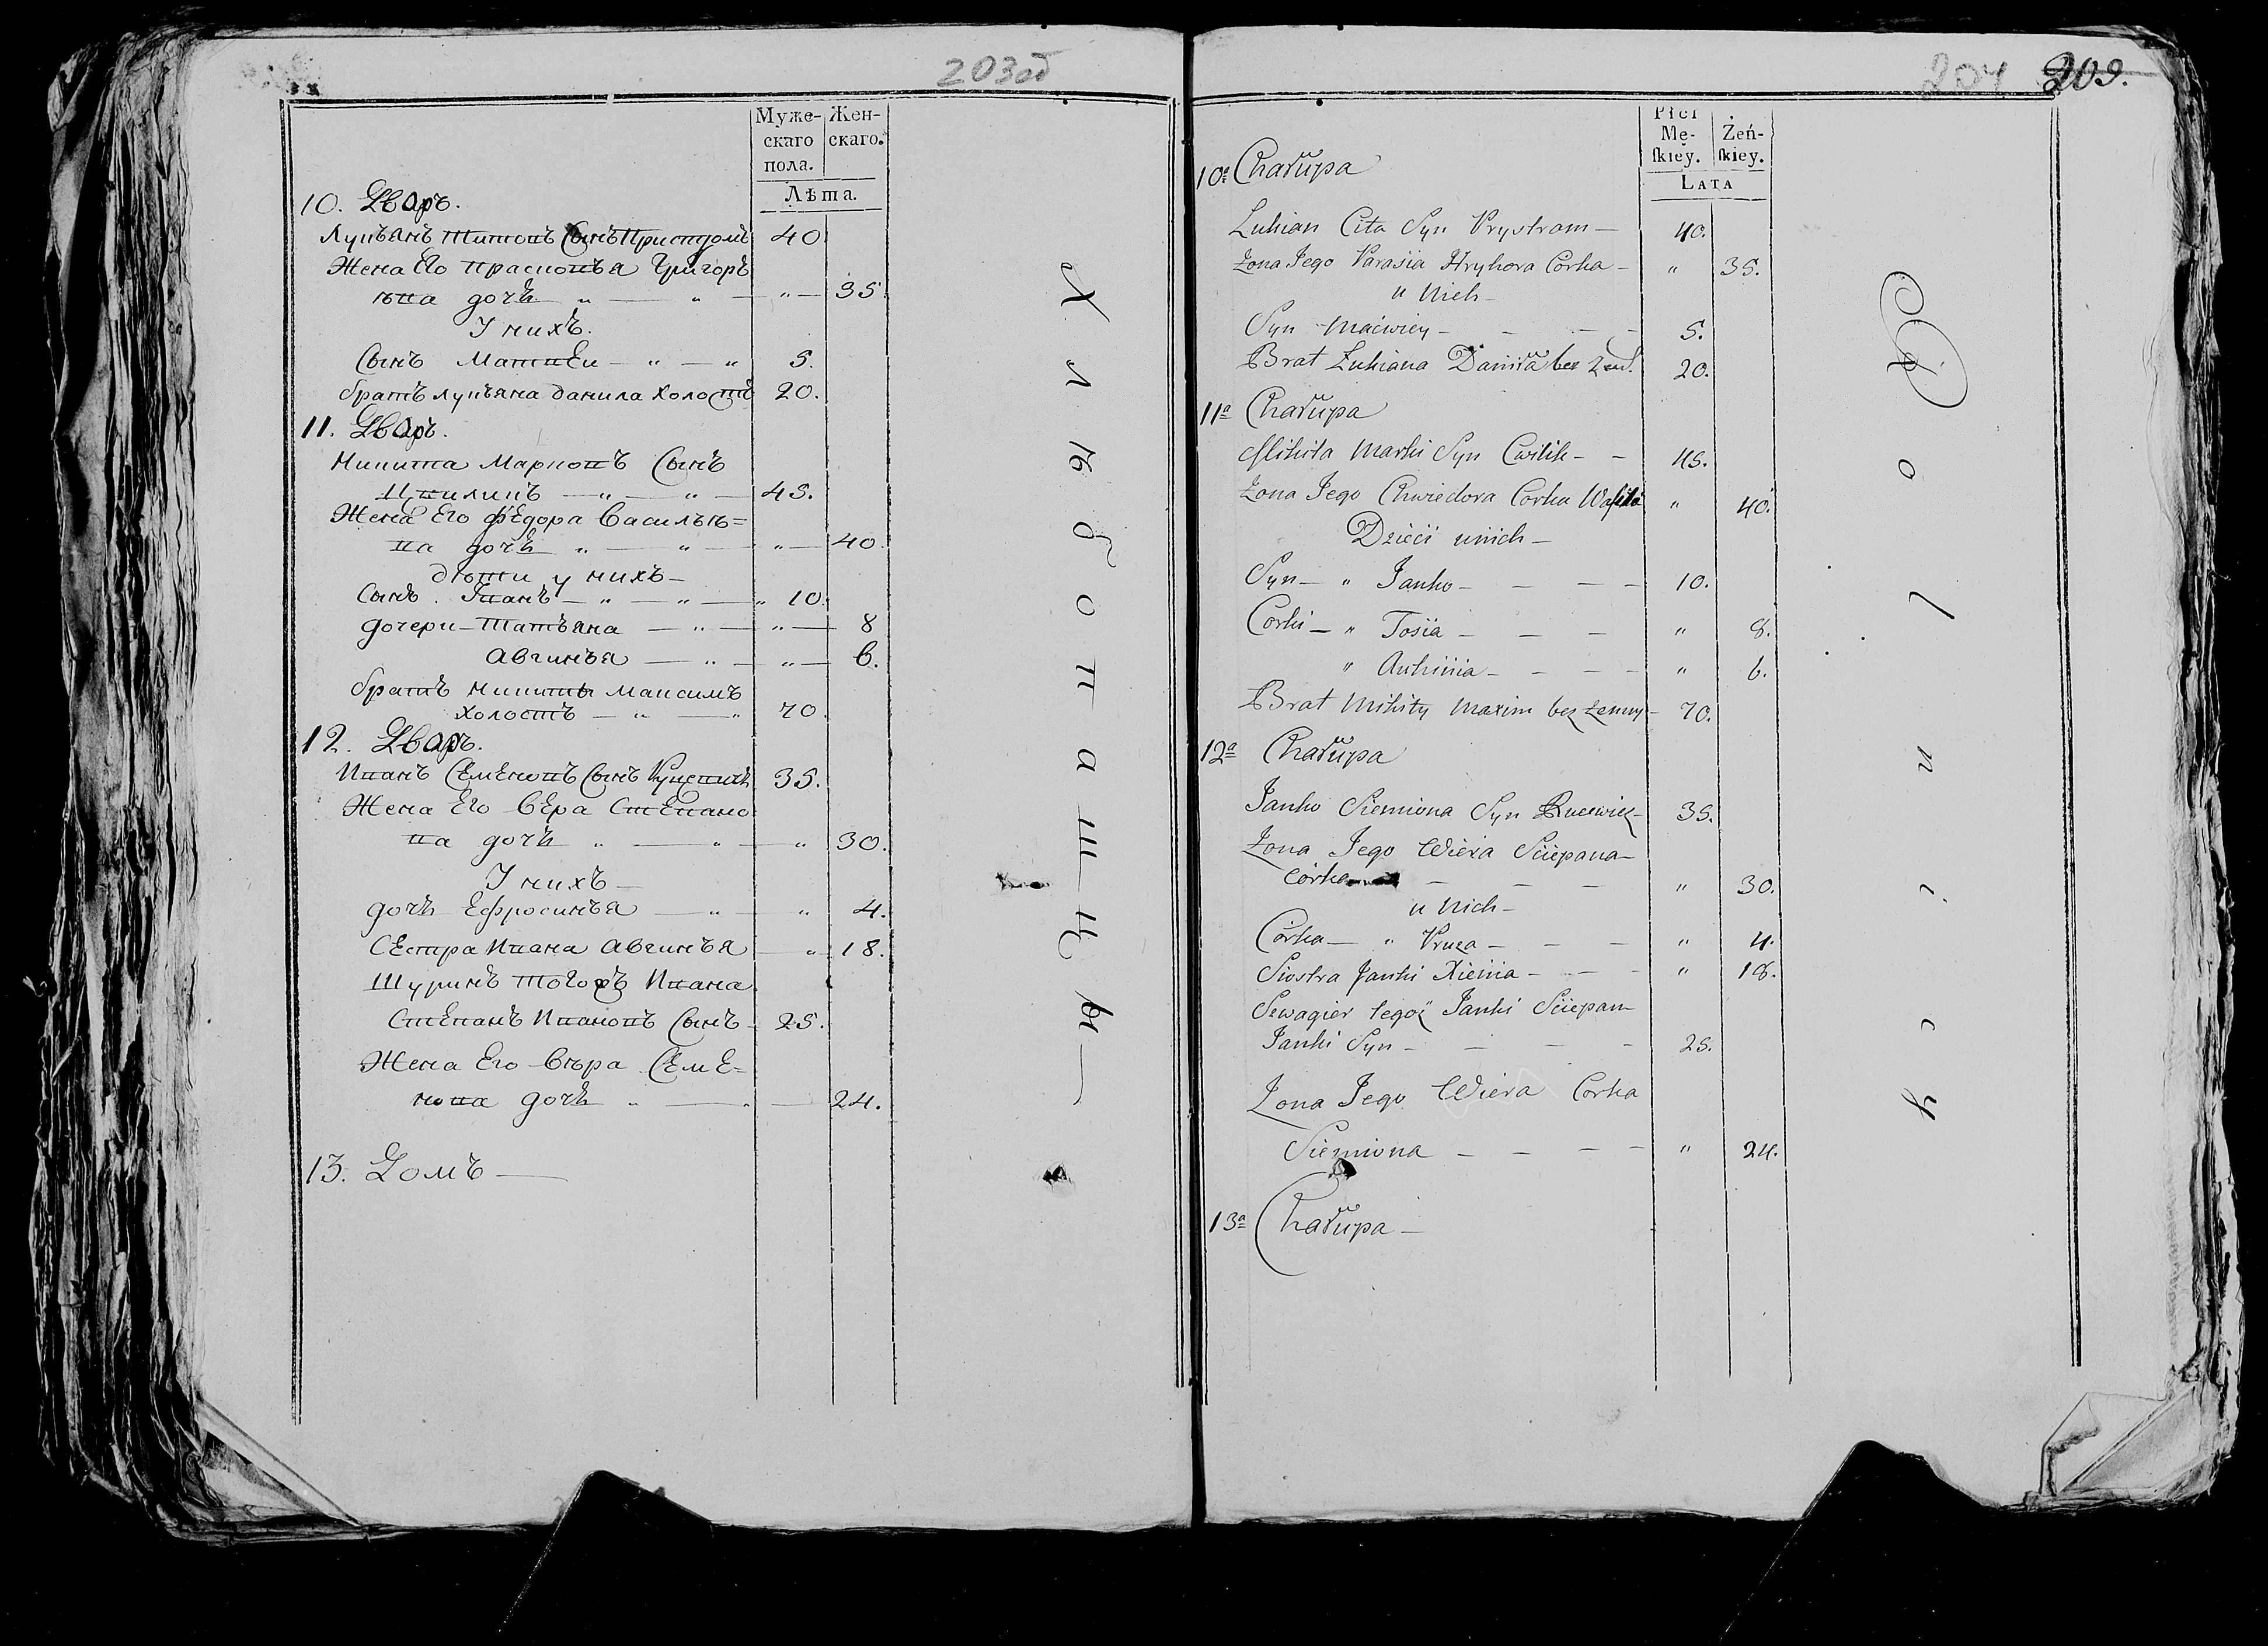 203об
Муже-
скаго
пола.
Жен-
скаго.
Лѣта.
10. Дворъ.
Лукьянъ Титовъ Сынъ Пристромъ 40
Жена Его Прасковья Григорь
ѣва дочь " — " — " — 35
У нихъ.
Сынъ Матвѣи — " — " 5.
братъ Лукьяна данила холостъ 20.
11. Дворъ.
Никита Марковъ Сынъ
Цвиликъ — " — " — 45.
Жена Его Федора Васильѣ=
ва дочь " — " — " — 40
дѣти у нихъ —
Сынъ. Іванъ — " — " — " 10.
дочери — Татьяна — " — " — 8
Авгинья — " — " — 6.
братъ Никиты Максимъ
холостъ — " — " 70.
12. Дворъ.
Иванъ Семеновъ Сынъ 35.
Жена Его Вера Степано
ва дочь " — " — " 30.
У нихъ —
дочь Ефросинья — " — " 4.
Сестра Ивана Авгинья — " 18.
Шуринъ тогожъ Ивана
Степанъ Ивановъ Сынъ 25.
Жена Его Вѣра Семе=
нова дочь " — " — 24.
13. Домъ —
Хлѣбопашцы —
204 209.
Płci
Mę-
ſkiey.
Żeń-
ſkiey.
LATA
10a Chałupa
Łukian Cita Syn Prystrom — 40.
Żona Jego Parasia Hryhora Corka — " 35.
u Nich —
Syn Maćwiey — — — 5.
Brat Łukiana Daniła bez żen. 20.
11a Chałupa
Mikita Marki Syn Cwilik — — 45.
Żona Jego Chwiedora Corka Wasila " 40.
Dzieci u nich —
Syn — " Janko — — — 10.
Corki — " Tosia — — — " 8.
" Auhinia — — — " 6.
Brat Mikity Maxim bez żenny — 70.
12a Chałupa
Janko Siemiona Syn 35.
Żona Jego Wiera Sciepana —
Corka — — — " 30.
u Nich —
Corka — " Pruza — — — " 4.
Siostra Janki Xienia — — — " 18.
Szwagier tegoż Janki Sciepan
Janki Syn — — — — 25.
Żona Jego Wiera Corka
Siemiona — — — — " 24.
13a Chałupa —
Rolnicy